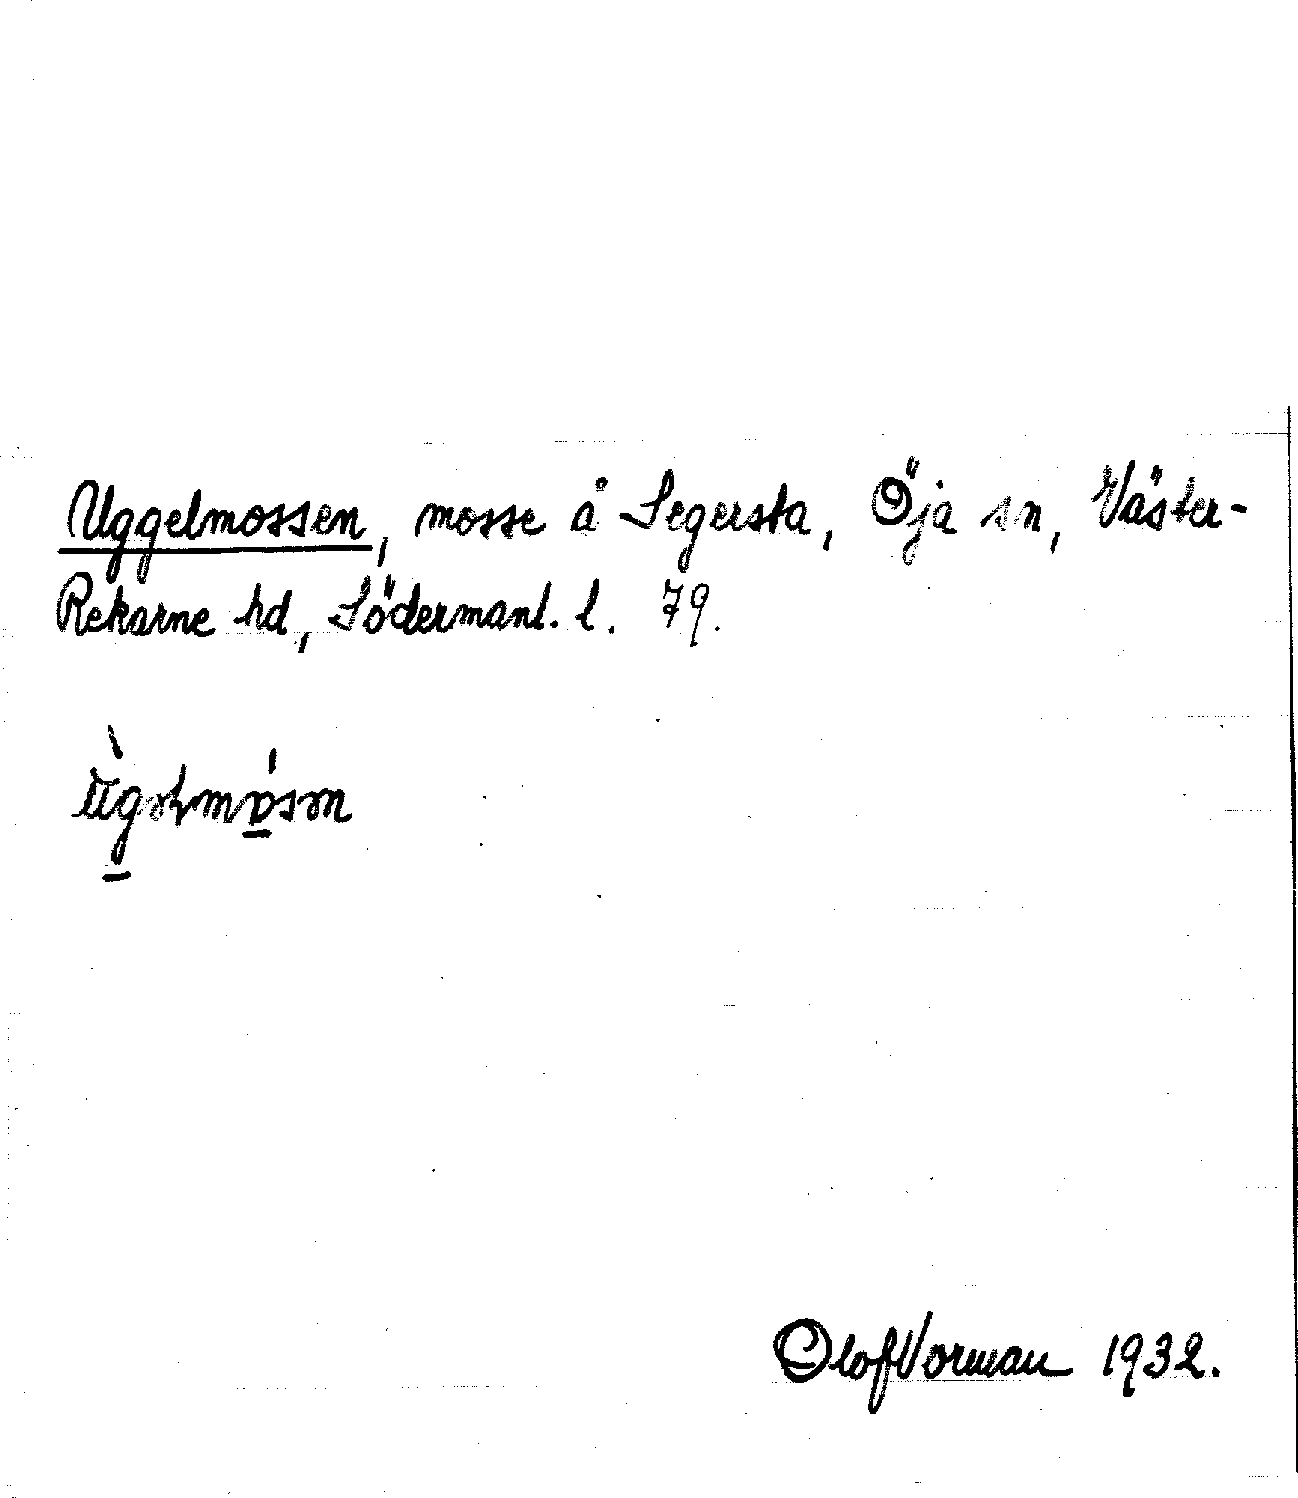 Uggelmossen, mosse å Segersta, Öja sn, Väster-
Rekarne hd, Södermanl. l. 79.
Olof Vorman 1932.